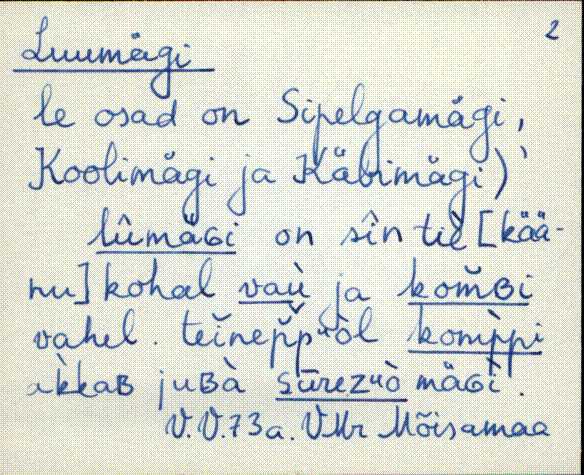 2
Luumägi
le osad on Sipelgamägi,
Koolimägi ja Käbimägi)
lûmäɢi on sîn tiè̮ [kää-
nu] kohal vaù ja kom̆ʙi
vahel. teĭnep̆pᵘòl kom̀ppi
ak̀kaʙ juʙà sūrezᵘò mäɢì.
V.V.73a. VMr Mõisamaa